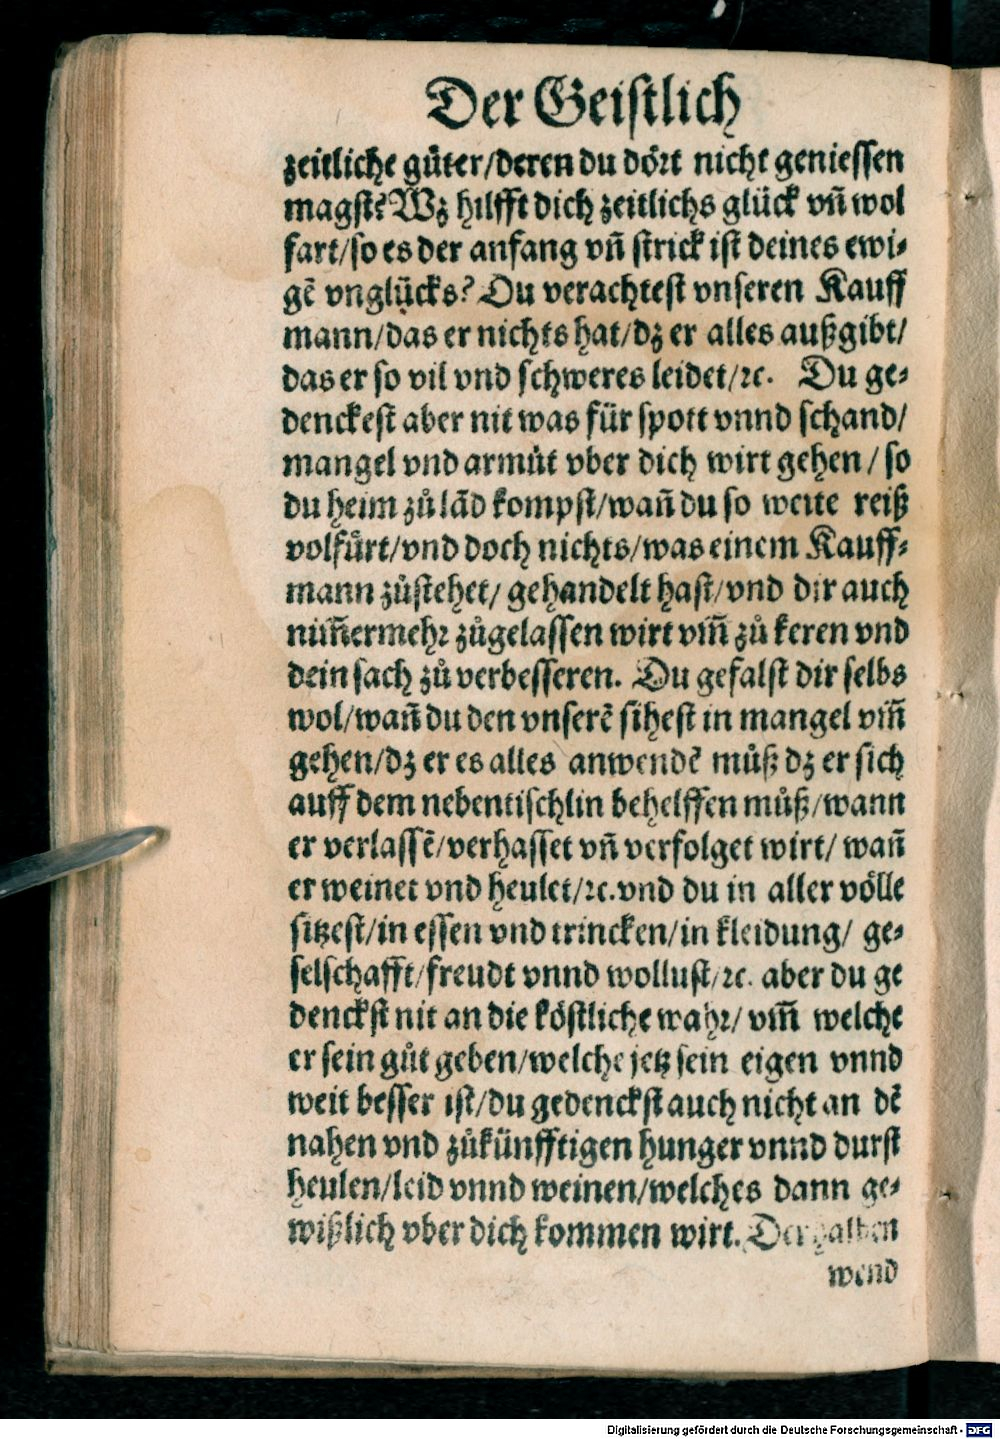 Der Geistlich
zeitliche guͤter/deren du doͤrt nicht geniessen
magst? Wz hilfft dich zeitlichs glück vñ wol
fart/so es der anfang vñ strick ist deines ewi⸗
gẽ vnglücks? Du verachtest vnseren Kauff
mann/das er nichts hat/dz er alles außgibt/
das er so vil vnd schweres leidet/ꝛc. Du ge⸗
denckest aber nit was für spott vnnd schand/
mangel vnd armuͤt vber dich wirt gehen/so
du heim zuͦ lãd kompst/wañ du so weite reiß
volfuͤrt/vnd doch nichts/was einem Kauff⸗
mann zuͦstehet/gehandelt hast/vnd dir auch
nim̃ermehꝛ zuͦgelassen wirt vm̃ zuͦ keren vnd
dein sach zuͦ verbesseren. Du gefalst dir selbs
wol/wañ du den vnserẽ sihest in mangel vm̃
gehen/dz er es alles anwendẽ muͦß dz er sich
auff dem nebentischlin behelffen muͦß/wann
er verlassẽ/verhasset vñ verfolget wirt/wañ
er weinet vnd heulet/ꝛc. vnd du in aller voͤlle
sitzest/in essen vnd trincken/in kleidung/ ge⸗
selschafft/freudt vnnd wollust/ꝛc. aber du ge
denckst nit an die koͤstliche wahꝛ/ vm̃ welche
er sein guͦt geben/welche jetz sein eigen vnnd
weit besser ist/du gedenckst auch nicht an dẽ
nahen vnd zuͦkünfftigen hunger vnnd durst
heulen/leid vnnd weinen/welches dann ge⸗
wißlich vber dich kommen wirt. Derhalben
wend
Digitalisierung gefördert durch die Deutsche Forschungsgemeinschaft - DFG